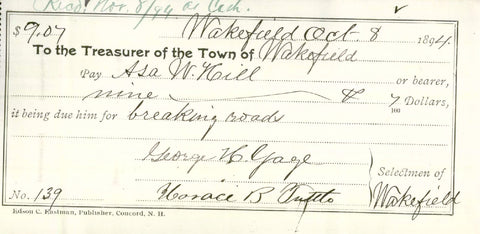 Rec'd. Nov. 8/94 as Cash.
$9.07 Wakefield Oct 8 1894.
To the Treasurer of the Town of Wakefield
Pay Asa W. Hill or bearer,
nine & 7/100 Dollars,
it being due him for breaking roads
George H. Gage
Selectmen of
No. 139 Horace B Tuttle Wakefield
Edson C. Eastman, Publisher, Concord, N. H.